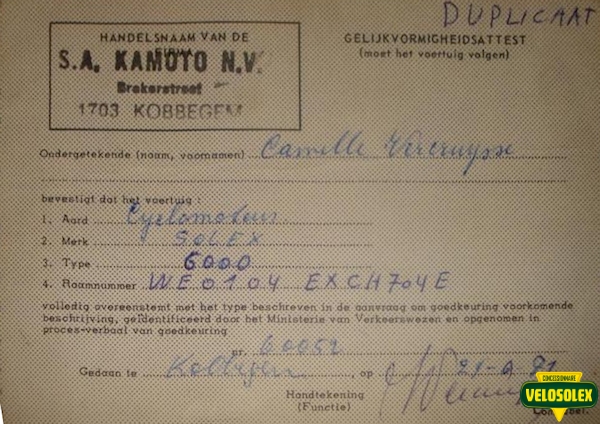 DUPLICAAT
HANDELSNAAM VAN DE
FIRMA
S.A. KAMOTO N.V.
Brokerstraat
1703 KOBBEGEM
GELIJKVORMIGHEIDSATTEST
(moet het voertuig volgen)
Ondergetekende (naam, voornamen) Camille Vercruysse
bevestigt dat het voertuig :
1. Aard Cyclomoteur
2. Merk SOLEX
3. Type 6000
4. Raamnummer WE0104 EXCH704E
volledig overeenstemt met het type beschreven in de aanvraag om goedkeuring voorkomende
beschrijving, geïdentificeerd door het Ministerie van Verkeerswezen en opgenomen in
proces-verbaal van goedkeuring
nr. 60052
Gedaan te Kobbegem, op
Handtekening
(Functie)
CONCESSIONNAIRE
VELOSOLEX